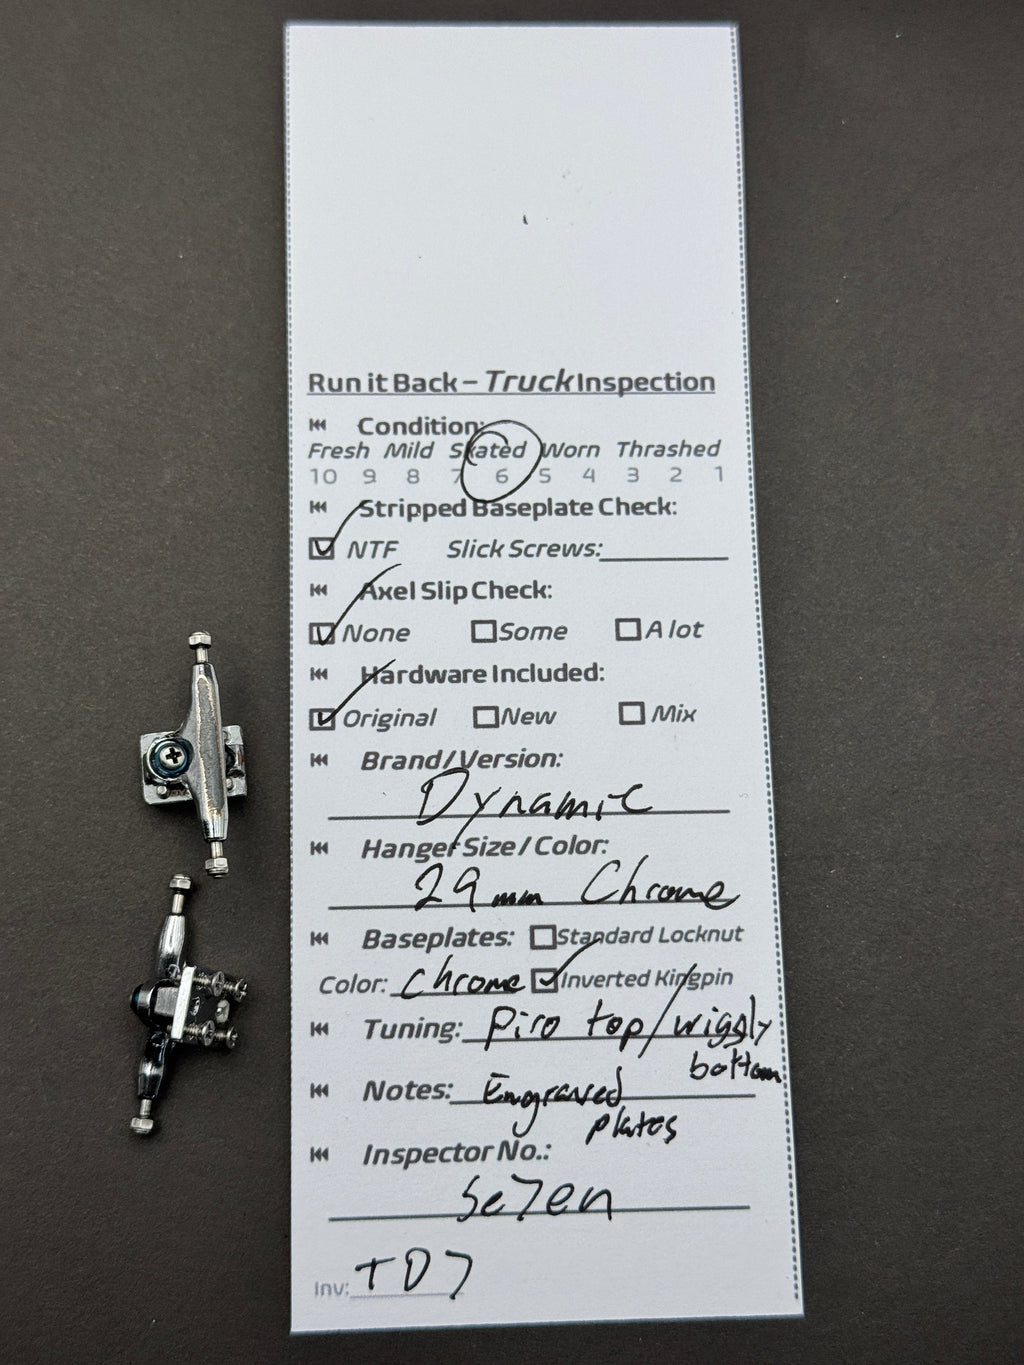 Run it Back – Truck Inspection
Condition:
Fresh Mild Skated Worn Thrashed
10 9 8 7 6 5 4 3 2 1
Stripped Baseplate Check:
NTF Slick Screws:
Axel Slip Check:
None Some A lot
Hardware Included:
Original New Mix
Brand/Version:
Dynamic
Hanger Size / Color:
29mm Chrome
Baseplates: Standard Locknut
Color: Chrome Inverted Kingpin
Tuning: Piro top/wiggly
bottom
Notes: Engraved
plates
Inspector No.:
Se7en
Inv: TD7